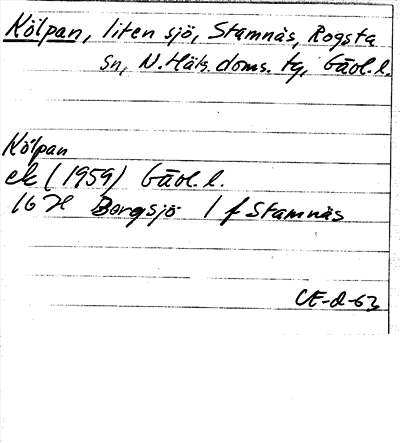 Kölpan, liten sjö, Stamnäs, Rogsta
sn, N. Häls. doms. tg, Gävl. l.
Kölpan
ek (1959) Gävl. l.
16 H Bergsjö 1 f Stamnäs